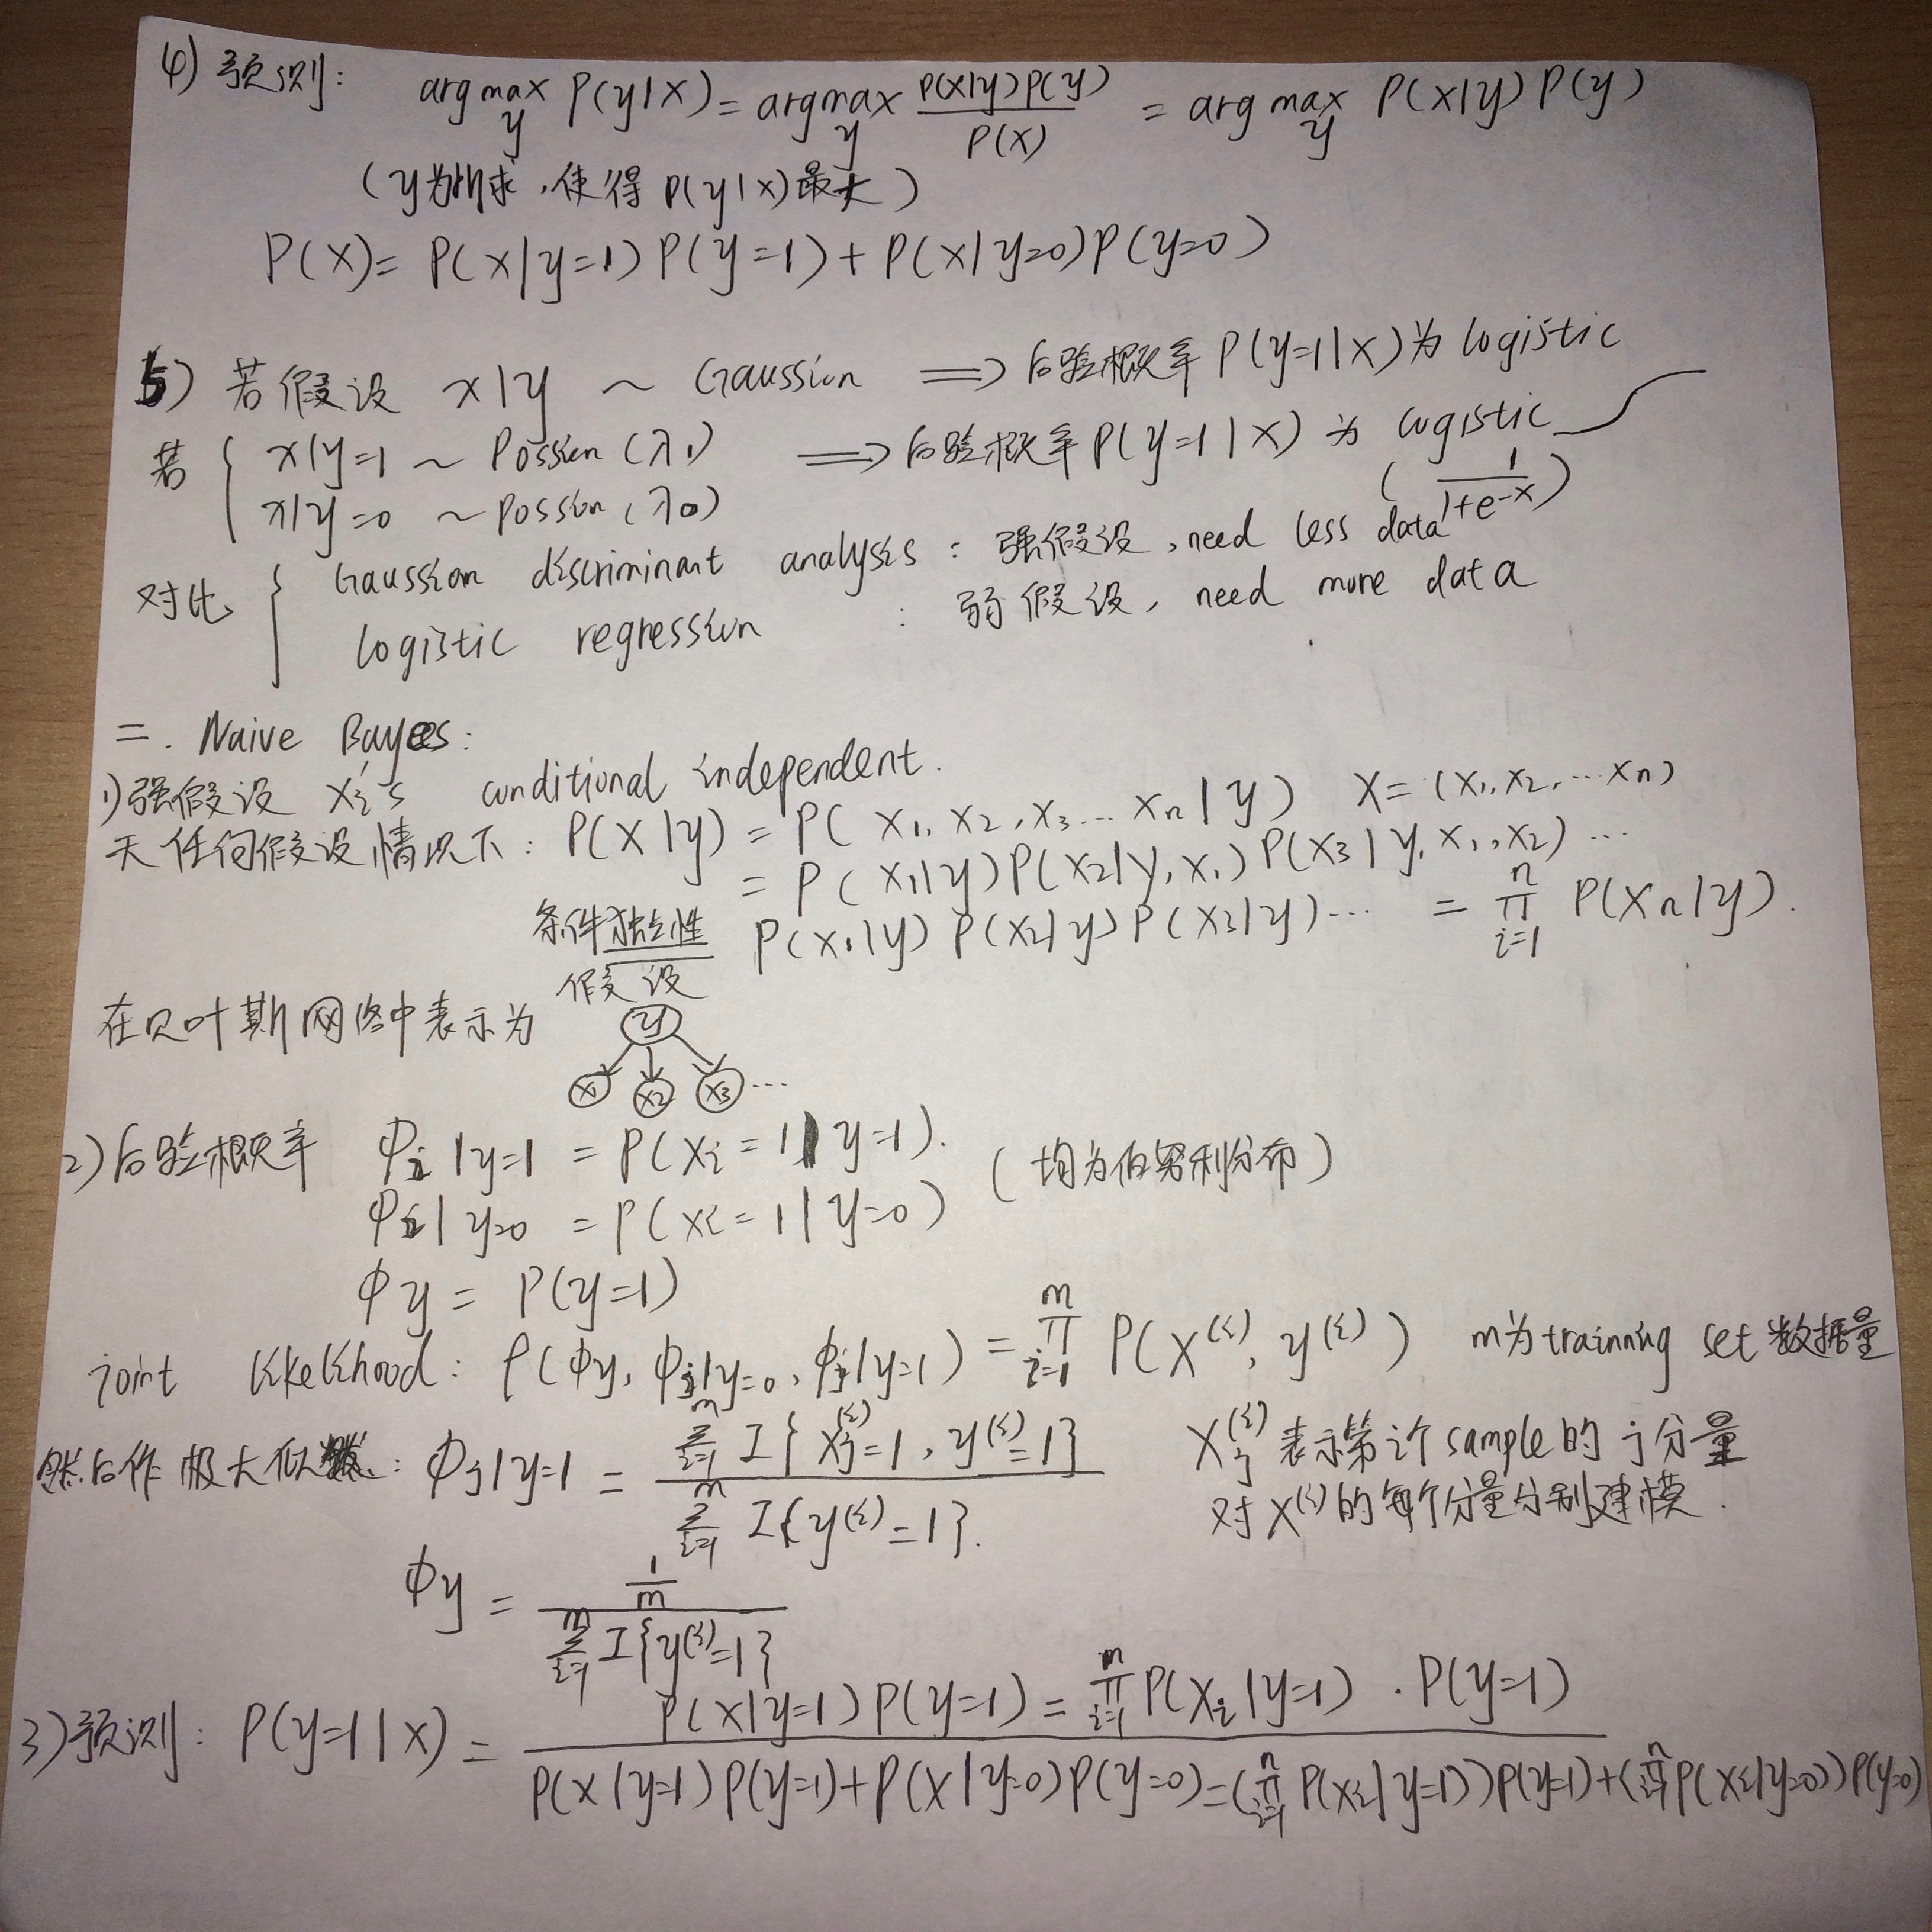 4) 预测: arg max_y P(y|x) = arg max_y P(x|y)P(y) / P(x) = arg max_y P(x|y) P(y)
(y为所求,使得 P(y|x)最大)
P(x) = P(x|y=1) P(y=1) + P(x|y=0) P(y=0)
5) 若假设 x|y ~ Gaussian ⟹ 后验概率 P(y=1|x) 为 logistic
若 { x|y=1 ~ Possion (λ₁) ⟹ 后验概率 P(y=1|x) 为 logistic
x|y=0 ~ Possion (λ₀) ( 1 / 1+e^-x )
对比 { Gaussian discriminant analysis : 强假设, need less data
logistic regression : 弱假设, need more data
二. Naive Bayes:
1) 强假设 xi's conditional independent.
无任何假设情况下: P(x|y) = P( x₁, x₂, x₃ ... xn | y) X = (x₁, x₂, ... xn)
= P( x₁|y) P(x₂|y, x₁) P(x₃|y, x₁, x₂) ...
条件独立性假设 P(x₁|y) P(x₂|y) P(x₃|y) ... = ∏_{i=1}^{n} P(xn|y).
在贝叶斯网络中表示为
y
x1 x2 x3 ...
2) 后验概率 Φi|y=1 = P(xi = 1 | y=1). (均为伯努利分布)
Φi|y=0 = P(xi = 1 | y=0)
Φy = P(y=1)
joint likelihood: ℓ(Φy, Φj|y=0, Φj|y=1) = ∏_{i=1}^{m} P(X^(i), y^(i)) m为trainning set 数据量
然后作极大似然: Φj|y=1 = ∑_{i=1}^{m} I{ xj^(i)=1, y^(i)=1} / ∑_{i=1}^{m} I{y^(i)=1}. Xj^(i) 表示第i个sample的j分量
对X^(i)的每个分量分别建模.
Φy = 1/m / ∑_{i=1}^{m} I{y^(i)=1}
3) 预测: P(y=1|x) = P(x|y=1) P(y=1) = ∏_{i=1}^{n} P(xi|y=1) · P(y=1)
/ P(x|y=1) P(y=1) + P(x|y=0) P(y=0) = (∏_{i=1}^{n} P(xi|y=1)) P(y=1) + (∏_{i=1}^{n} P(xi|y=0)) P(y=0)